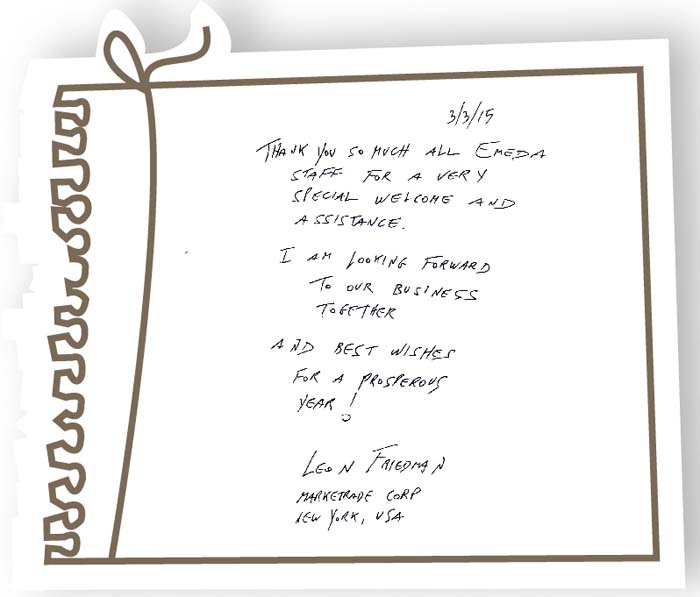 3/3/15
THANK YOU SO MUCH ALL EMEDA
STAFF FOR A VERY
SPECIAL WELCOME AND
ASSISTANCE.
I AM LOOKING FORWARD
TO OUR BUSINESS
TOGETHER
AND BEST WISHES
FOR A PROSPEROUS
YEAR!
LEON FRIEDMAN
MARKETRADE CORP
NEW YORK, USA